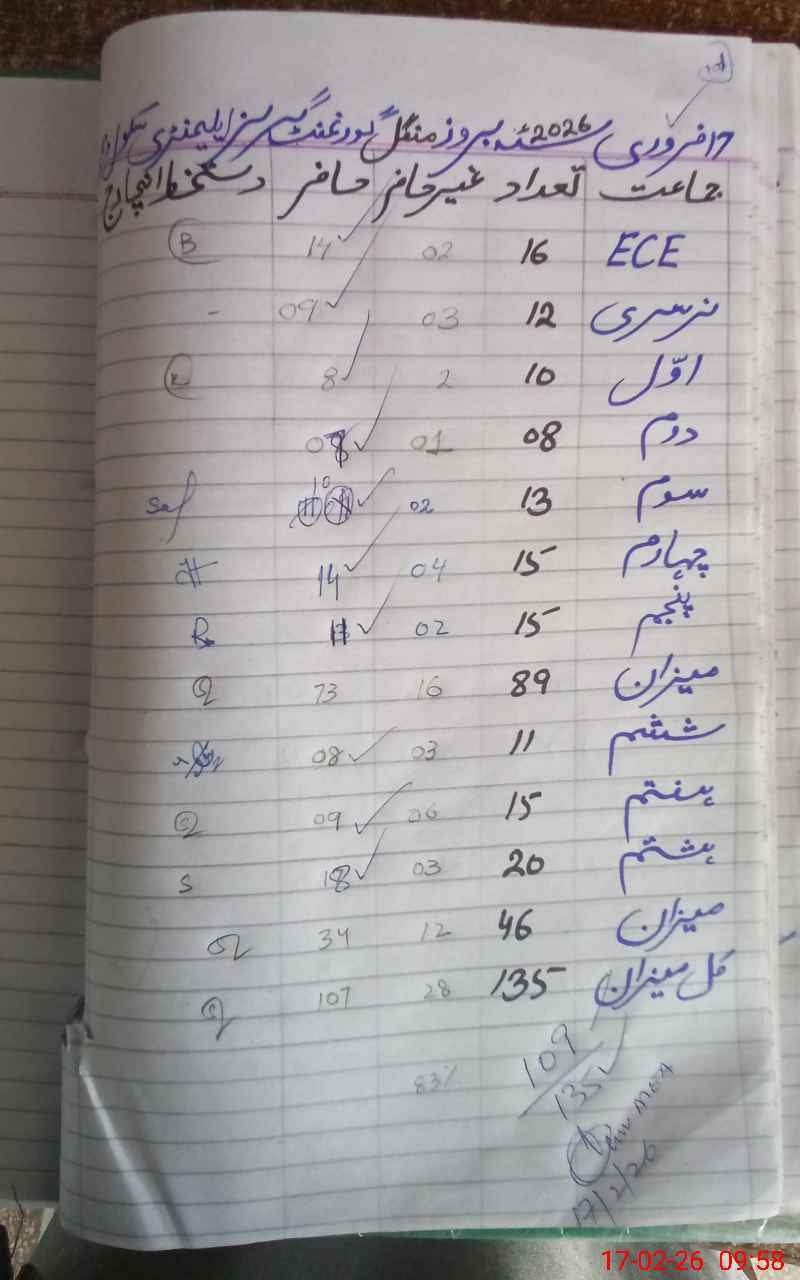 17 فروری 2026ء بروز منگل گورنمنٹ گرلز ایلیمنٹری سکول
جماعت تعداد غیر حاضر حاضر دستخط انچارج
ECE 16 02 14 B
نرسری 12 03 09 -
اوّل 10 2 8
دوم 08 01
سوم 13 02 10 Saf
چہارم 15 04 14 H
پنجم 15 02 R
میزان 89 16 73
ششم 11 03 08
ہفتم 15 06 09
ہشتم 20 03 18 S
میزان 46 12 34
کل میزان 135 28 107
109
135
83%
17/2/26
17-02-26 09:58